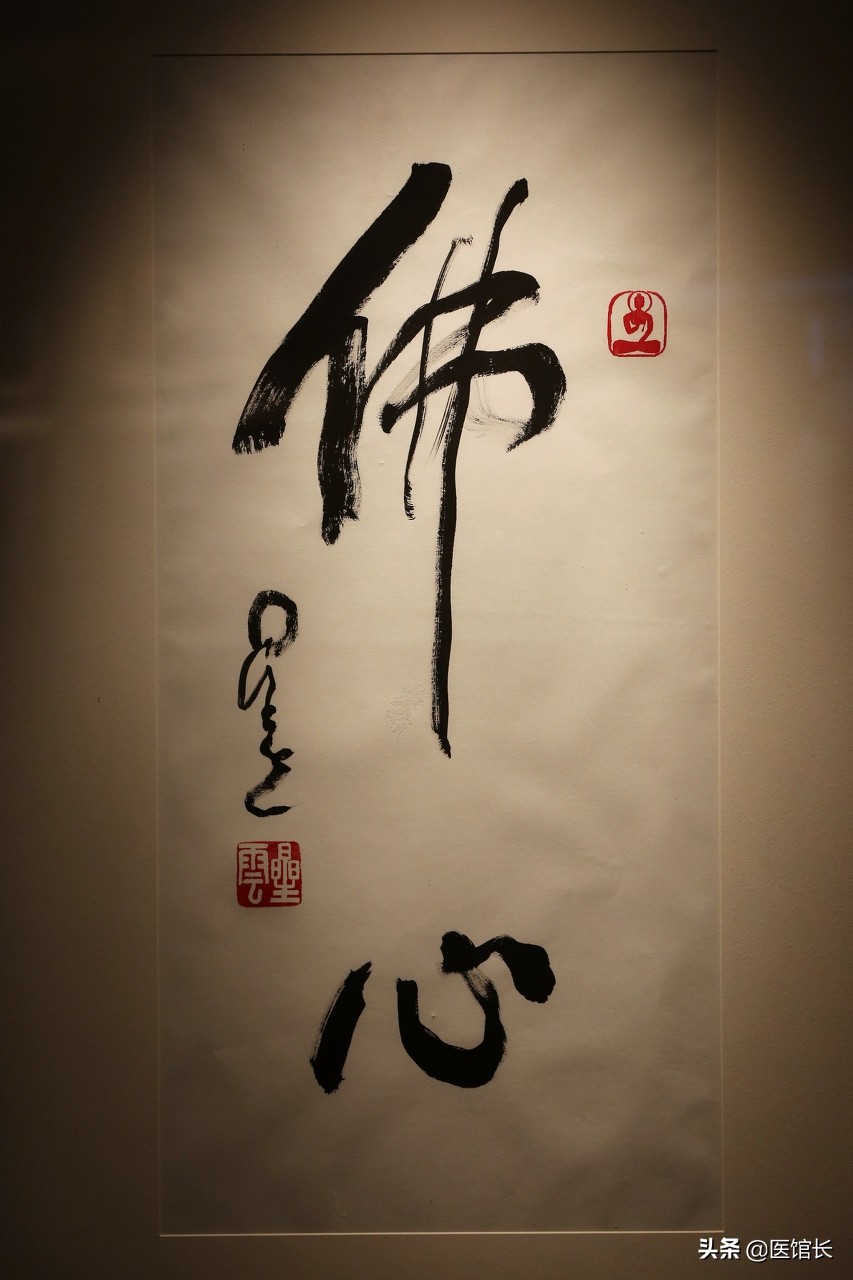 佛心
星雲
星雲
头条 @医馆长